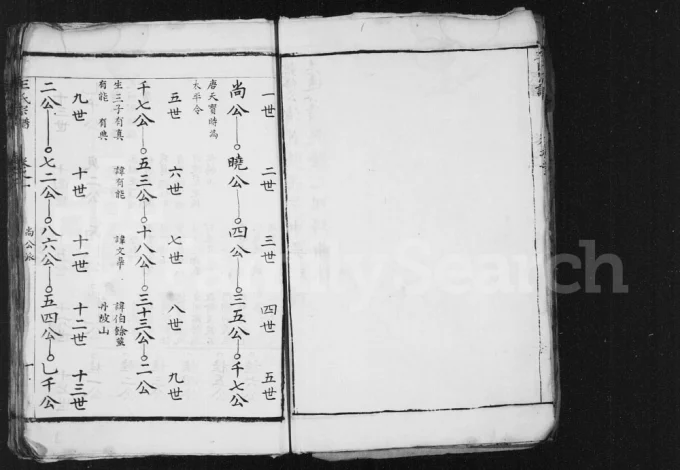 一世 二世 三世 四世 五世
尚公 曉公 四公 三五公 千七公
唐天寶時為
太平令
五世 六世 七世 八世 九世
千七公 五三公 十八公 三十三公 二公
生三子有真 諱有能 諱文華 諱伯餘葬
有能 有典 丹陂山
九世 十世 十一世 十二世 十三世
二公 七二公 八六公 五四公 乙千公
王氏宗譜
尚公派
FamilySearch